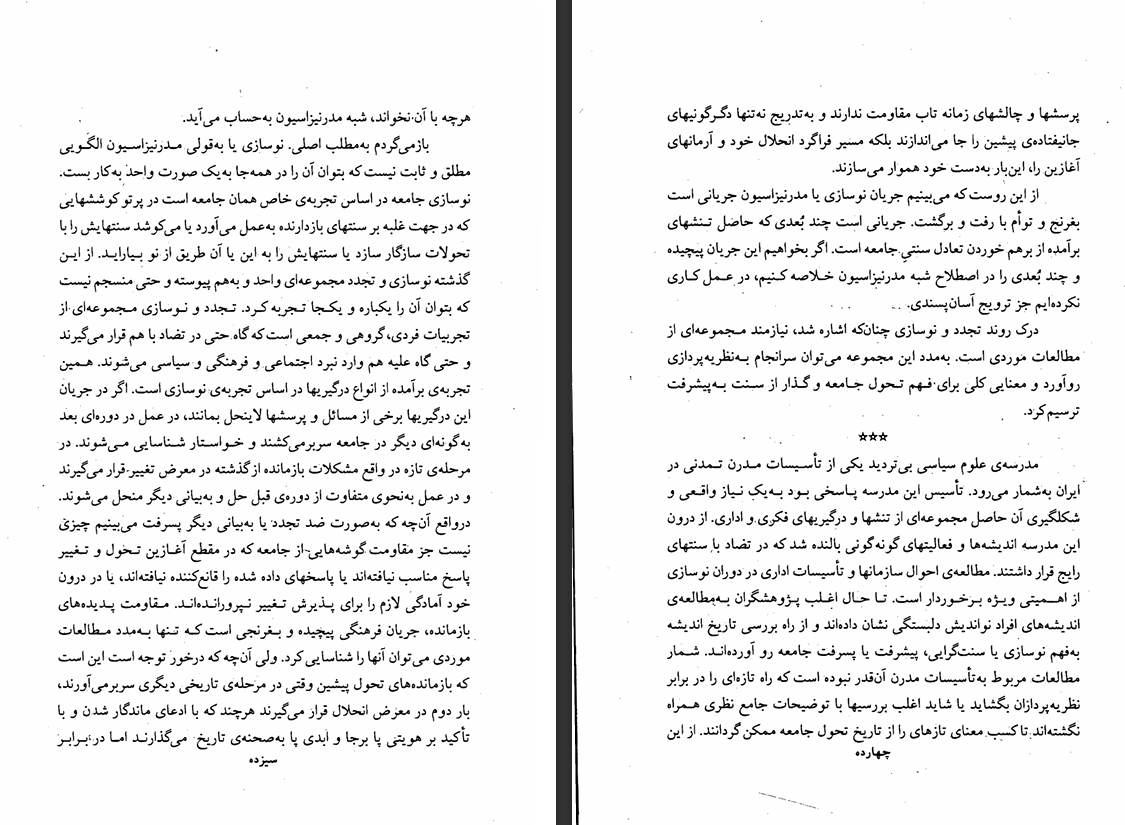 هرچه با آن نخواند، شبه مدرنیزاسیون به‌حساب می‌آید.
بازمی‌گردم به‌مطلب اصلی. نوسازی یا به‌قولی مدرنیزاسیون الگویی
مطلق و ثابت نیست که بتوان آن را در همه‌جا به‌یک صورت واحد به‌کار بست.
نوسازی جامعه در اساس تجربه‌ی خاص همان جامعه است در پرتو کوششهایی
که در جهت غلبه بر سنتهای بازدارنده به‌عمل می‌آورد یا می‌کوشد سنتهایش را با
تحولات سازگار سازد یا سنتهایش را به این یا آن طریق از نو بیاراید. از این
گذشته نوسازی و تجدد مجموعه‌ای واحد و به‌هم پیوسته و حتی منسجم نیست
که بتوان آن را یکباره و یکجا تجربه کرد. تجدد و نوسازی مجموعه‌ای از
تجربیات فردی، گروهی و جمعی است که گاه حتی در تضاد با هم قرار می‌گیرند
و حتی گاه علیه هم وارد نبرد اجتماعی و فرهنگی و سیاسی می‌شوند. همین
تجربه‌ی برآمده از انواع درگیریها در اساس تجربه‌ی نوسازی است. اگر در جریان
این درگیریها برخی از مسائل و پرسشها لاینحل بمانند، در عمل در دوره‌ای بعد
به‌گونه‌ای دیگر در جامعه سربرمی‌کشند و خواستار شناسایی می‌شوند. در
مرحله‌ی تازه در واقع مشکلات بازمانده از گذشته در معرض تغییر قرار می‌گیرند
و در عمل به‌نحوی متفاوت از دوره‌ی قبل حل و به‌بیانی دیگر منحل می‌شوند.
درواقع آن‌چه که به‌صورت ضد تجدد یا به‌بیانی دیگر پسرفت می‌بینیم چیزی
نیست جز مقاومت گوشه‌هایی از جامعه که در مقطع آغازین تحول و تغییر
پاسخ مناسب نیافته‌اند یا پاسخهای داده شده را قانع‌کننده نیافته‌اند، یا در درون
خود آمادگی لازم را برای پذیرش تغییر نپرورانده‌اند. مقاومت پدیده‌های
بازمانده، جریان فرهنگی پیچیده و بغرنجی است که تنها به‌مدد مطالعات
موردی می‌توان آنها را شناسایی کرد. ولی آن‌چه که درخور توجه است این است
که بازمانده‌های تحول پیشین وقتی در مرحله‌ی تاریخی دیگری سربرمی‌آورند،
بار دوم در معرض انحلال قرار می‌گیرند هرچند که با ادعای ماندگار شدن و با
تأکید بر هویتی پا برجا و ابدی پا به‌صحنه‌ی تاریخ می‌گذارند اما در برابر
سیزده
پرسشها و چالشهای زمانه تاب مقاومت ندارند و به‌تدریج نه‌تنها دگرگونیهای
جانیفتاده‌ی پیشین را جا می‌اندازند بلکه مسیر فراگرد انحلال خود و آرمانهای
آغازین را، این‌بار به‌دست خود هموار می‌سازند.
از این روست که می‌بینیم جریان نوسازی یا مدرنیزاسیون جریانی است
بغرنج و توأم با رفت و برگشت. جریانی است چند بُعدی که حاصل تنشهای
برآمده از برهم خوردن تعادل سنتیِ جامعه است. اگر بخواهیم این جریان پیچیده
و چند بُعدی را در اصطلاح شبه مدرنیزاسیون خلاصه کنیم، در عمل کاری
نکرده‌ایم جز ترویج آسان‌پسندی.
درک روند تجدد و نوسازی چنان‌که اشاره شد، نیازمند مجموعه‌ای از
مطالعات موردی است. به‌مدد این مجموعه می‌توان سرانجام به‌نظریه‌پردازی
روآورد و معنایی کلی برای فهم تحول جامعه و گذار از سنت به‌پیشرفت
ترسیم کرد.
☆☆☆
مدرسه‌ی علوم سیاسی بی‌تردید یکی از تأسیسات مدرن تمدنی در
ایران به‌شمار می‌رود. تأسیس این مدرسه پاسخی بود به‌یک نیاز واقعی و
شکلگیری آن حاصل مجموعه‌ای از تنشها و درگیریهای فکری و اداری. از درون
این مدرسه اندیشه‌ها و فعالیتهای گونه‌گونی بالنده شد که در تضاد با سنتهای
رایج قرار داشتند. مطالعه‌ی احوال سازمانها و تأسیسات اداری در دوران نوسازی
از اهمیتی ویژه برخوردار است. تا حال اغلب پژوهشگران به‌مطالعه‌ی
اندیشه‌های افراد نواندیش دلبستگی نشان داده‌اند و از راه بررسی تاریخ اندیشه
به‌فهم نوسازی یا سنت‌گرایی، پیشرفت یا پسرفت جامعه رو آورده‌اند. شمار
مطالعات مربوط به‌تأسیسات مدرن آن‌قدر نبوده است که راه تازه‌ای را در برابر
نظریه‌پردازان بگشاید یا شاید اغلب بررسیها با توضیحات جامع نظری همراه
نگشته‌اند تا کسب معنای تازهای را از تاریخ تحول جامعه ممکن گردانند. از این
چهارده